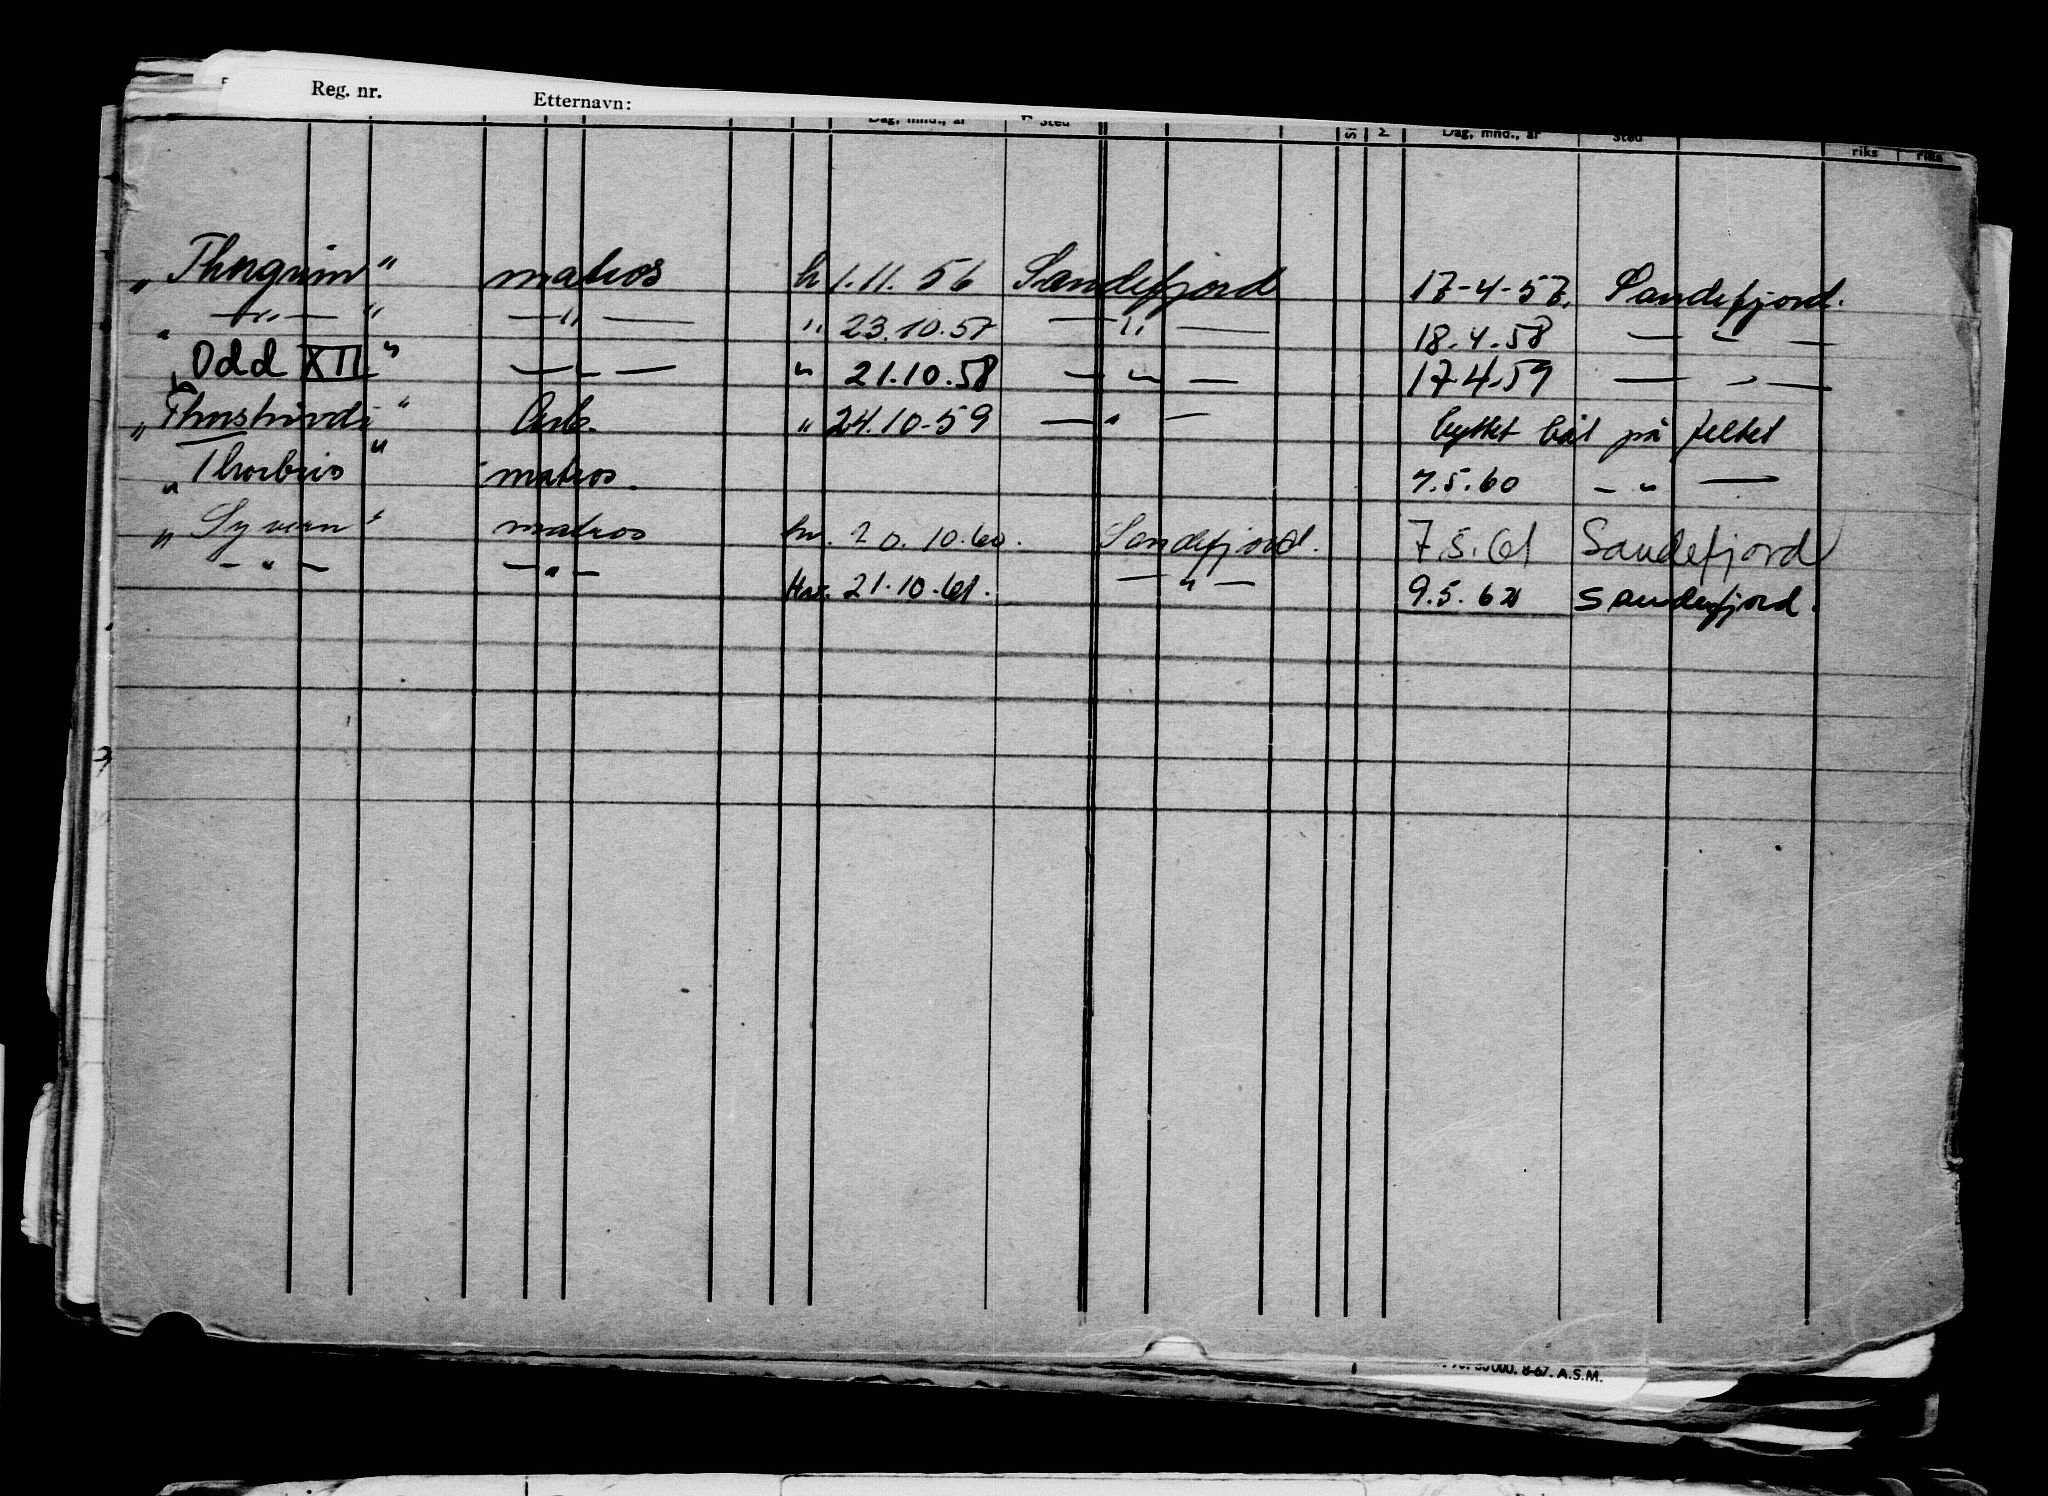 Reg. nr. Etternavn:
Dag, mnd., år Sted Dag, mnd., år Sted riks riks
„ Thorgrim " matros h 1.11.56 Sandefjord 17-4-57. Sandefjord.
„ —"— " —"— " 23.10.57 —"— 18.4.58 —"—
„ Odd XII " —"— " 21.10.58 —"— 17-4-59 —"—
„ Thorshøvdi " Arb. " 24.10-59 —"— byttet båt på feltet
„ Thorbris " matros. 7.5.60 —"—
„ Syvern " matros hv. 20.10.60. Sandefjord. 7.5.61 Sandefjord
—"— —"— Hv. 21.10.61. —"— 9.5.62 Sandefjord.
8-67. A.S.M.